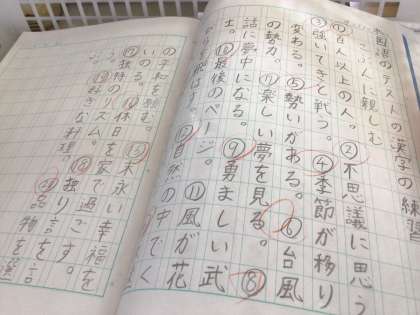 国語のテストの漢字の練習
こぶんに親しむ
①百人以上の人。②不思議に思う
③強いてきと戦う。④季節が移り
変わる。⑤勢いがある。⑥台風
の勢力。⑦楽しい夢を見る。⑧
話に夢中になる。⑨勇ましい武
士。⑩最後のページ。⑪風が花
⑫自然の中でく
の平和を願う。⑮永い幸福を
いのる。⑯休日を家で過ごす。
⑰独特のリズム。⑱独り言を言
⑲好きな料理。
物を選